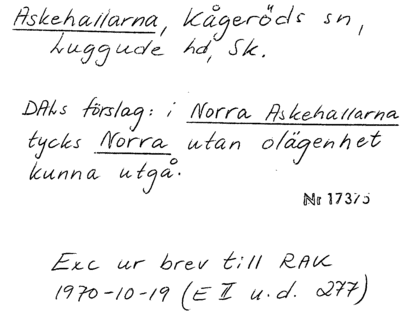 Askehallarna, Kågeröds sn,
Luggude hd, Sk.
DALs förslag: i Norra Askehallarna
tycks Norra utan olägenhet
kunna utgå.
Nr 17375
Exc ur brev till RAK
1970-10-19 (E II u.d. 277)